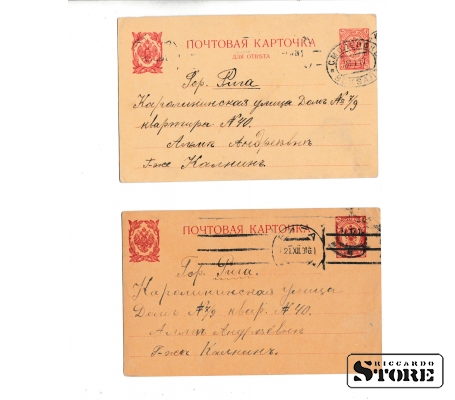 ПОЧТОВАЯ КАРТОЧКА
ДЛЯ ОТВѢТА
Гор. Рига
Каролининская улица Домъ № 7/9
квартира № 40.
Г-же Калнинъ.
ПОЧТОВАЯ КАРТОЧКА
21 XII
Гор. Рига.
Каролининская улица
Домъ № 7/9 квар. № 40.
Г-жи Калнинъ.
RICCARDO
STORE